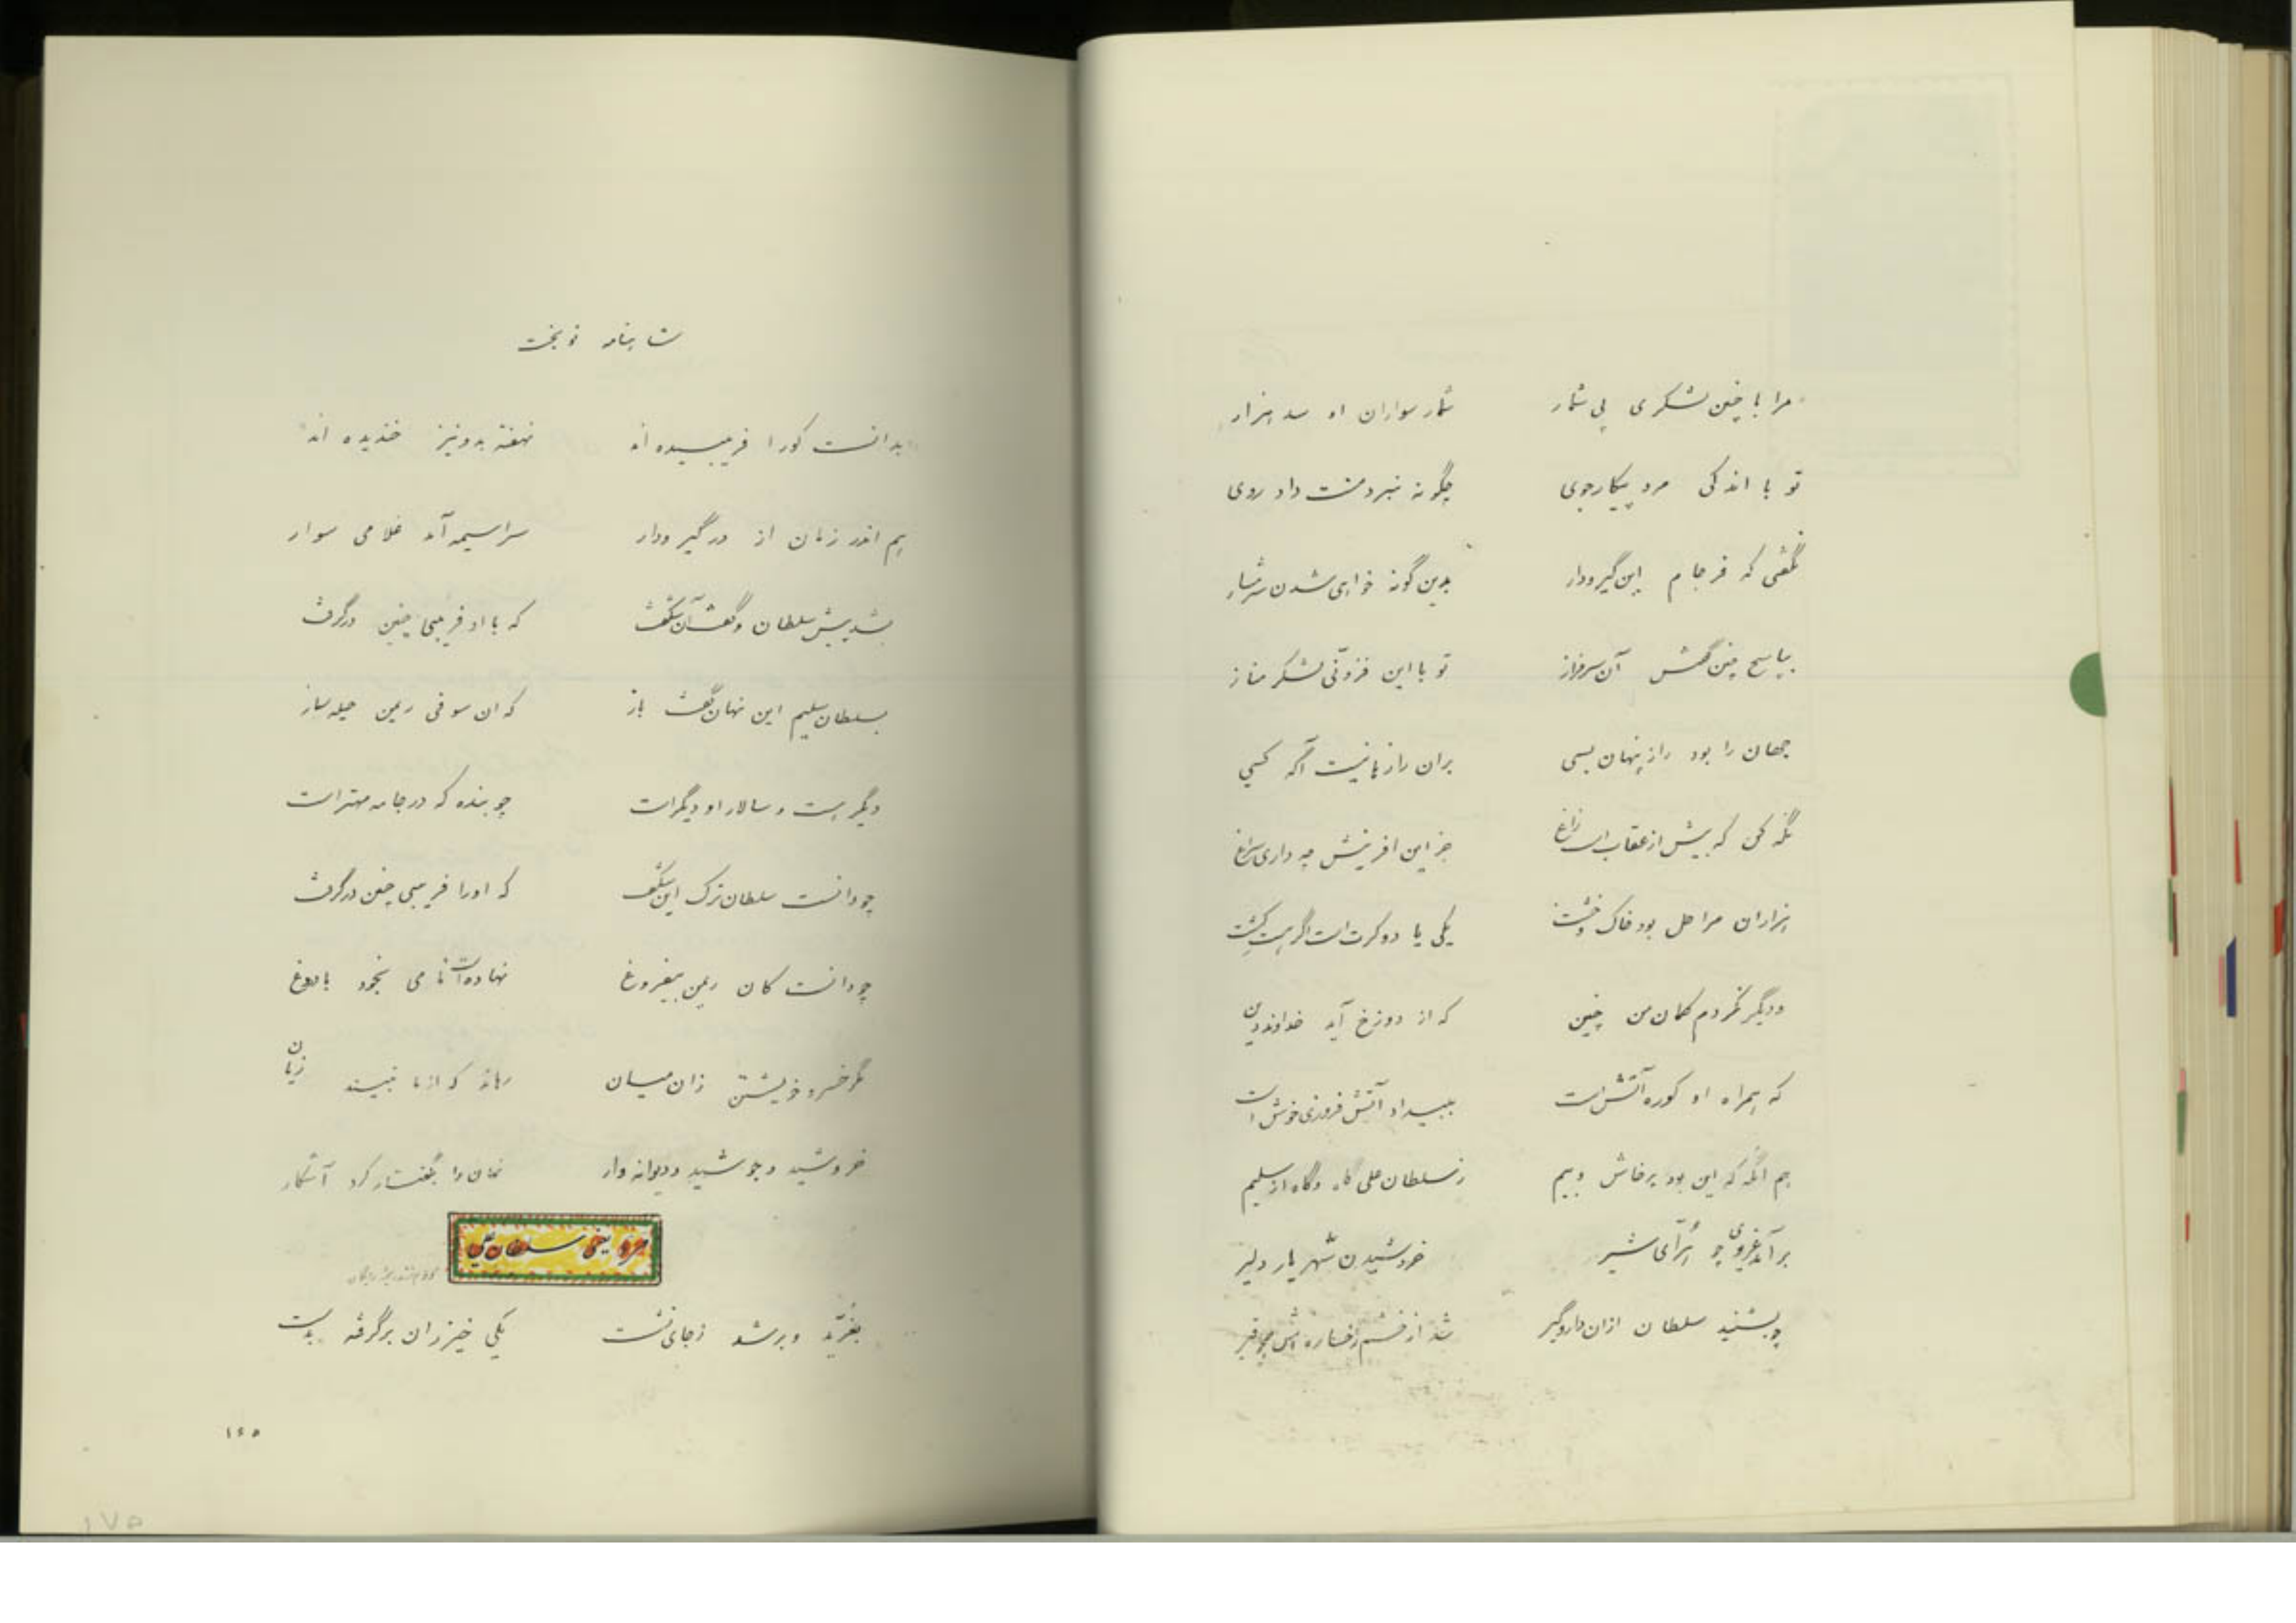 مرا با چنین لشکری بی شمار شمار سواران او سد هزار
تو با اندکی مرد پیکارجوی چگونه نبردمنت داد روی
نگفتی که فرجام این گیرودار بدین گونه خواهی شدن شرمسار
بپاسخ چنین گفتش آن سرفراز تو با این فزونی لشکر مناز
جهان را بود راز پنهان بسی بران رازها نیست آگه کسی
نگه کن که بیش از عقاب است زاغ جز این آفرینش چه داری سراغ
هزاران مراحل بود خاک و خشت یکی یا دو کرت است اگر هست کشت
و دیگر نکردم گمان من چنین که از دوزخ آید خداوند دین
که همراه او کوره آتش است ببیداد آتش فروزی خوش است
هم آنگه که این بود پرخاش و بیم ز سلطان علی گاه و گاه از سلیم
برآمد غریوی چو هُرّای شیر خروشیدن شهریار دلیر
چو بشنید سلطان ازان داروگیر شد از خشم رخساره اش همچو قیر
شاهنامه نوبخت
بدانست کورا فریبیده اند نهفته بدو نیز خندیده اند
هم اندر زمان از در گیرودار سراسیمه آمد غلامی سوار
بشد پیش سلطان و گفت آن شگفت که با او فریبی چنین درگرفت
بسلطان سلیم این نهان گفت باز که آن سوفی ریمن حیله ساز
دیگر هست و سالار او دیگر است چو بنده که در جامه مهتر است
چو دانست سلطان ترک این شگفت که او را فریبی چنین درگرفت
چو دانست کان ریمن بیفروغ نهاده است نامی بخود با دروغ
مگر خسرو خویشتن زان میان رهاند که از ما نبیند زیان
خروشید و جوشید و دیوانه وار نهان را بگفتار کرد آشکار
سلطان علی
بغرّید و برشد ز جای نشست یکی خیزران برگرفته بدست
۱۶۵
۱۷۵